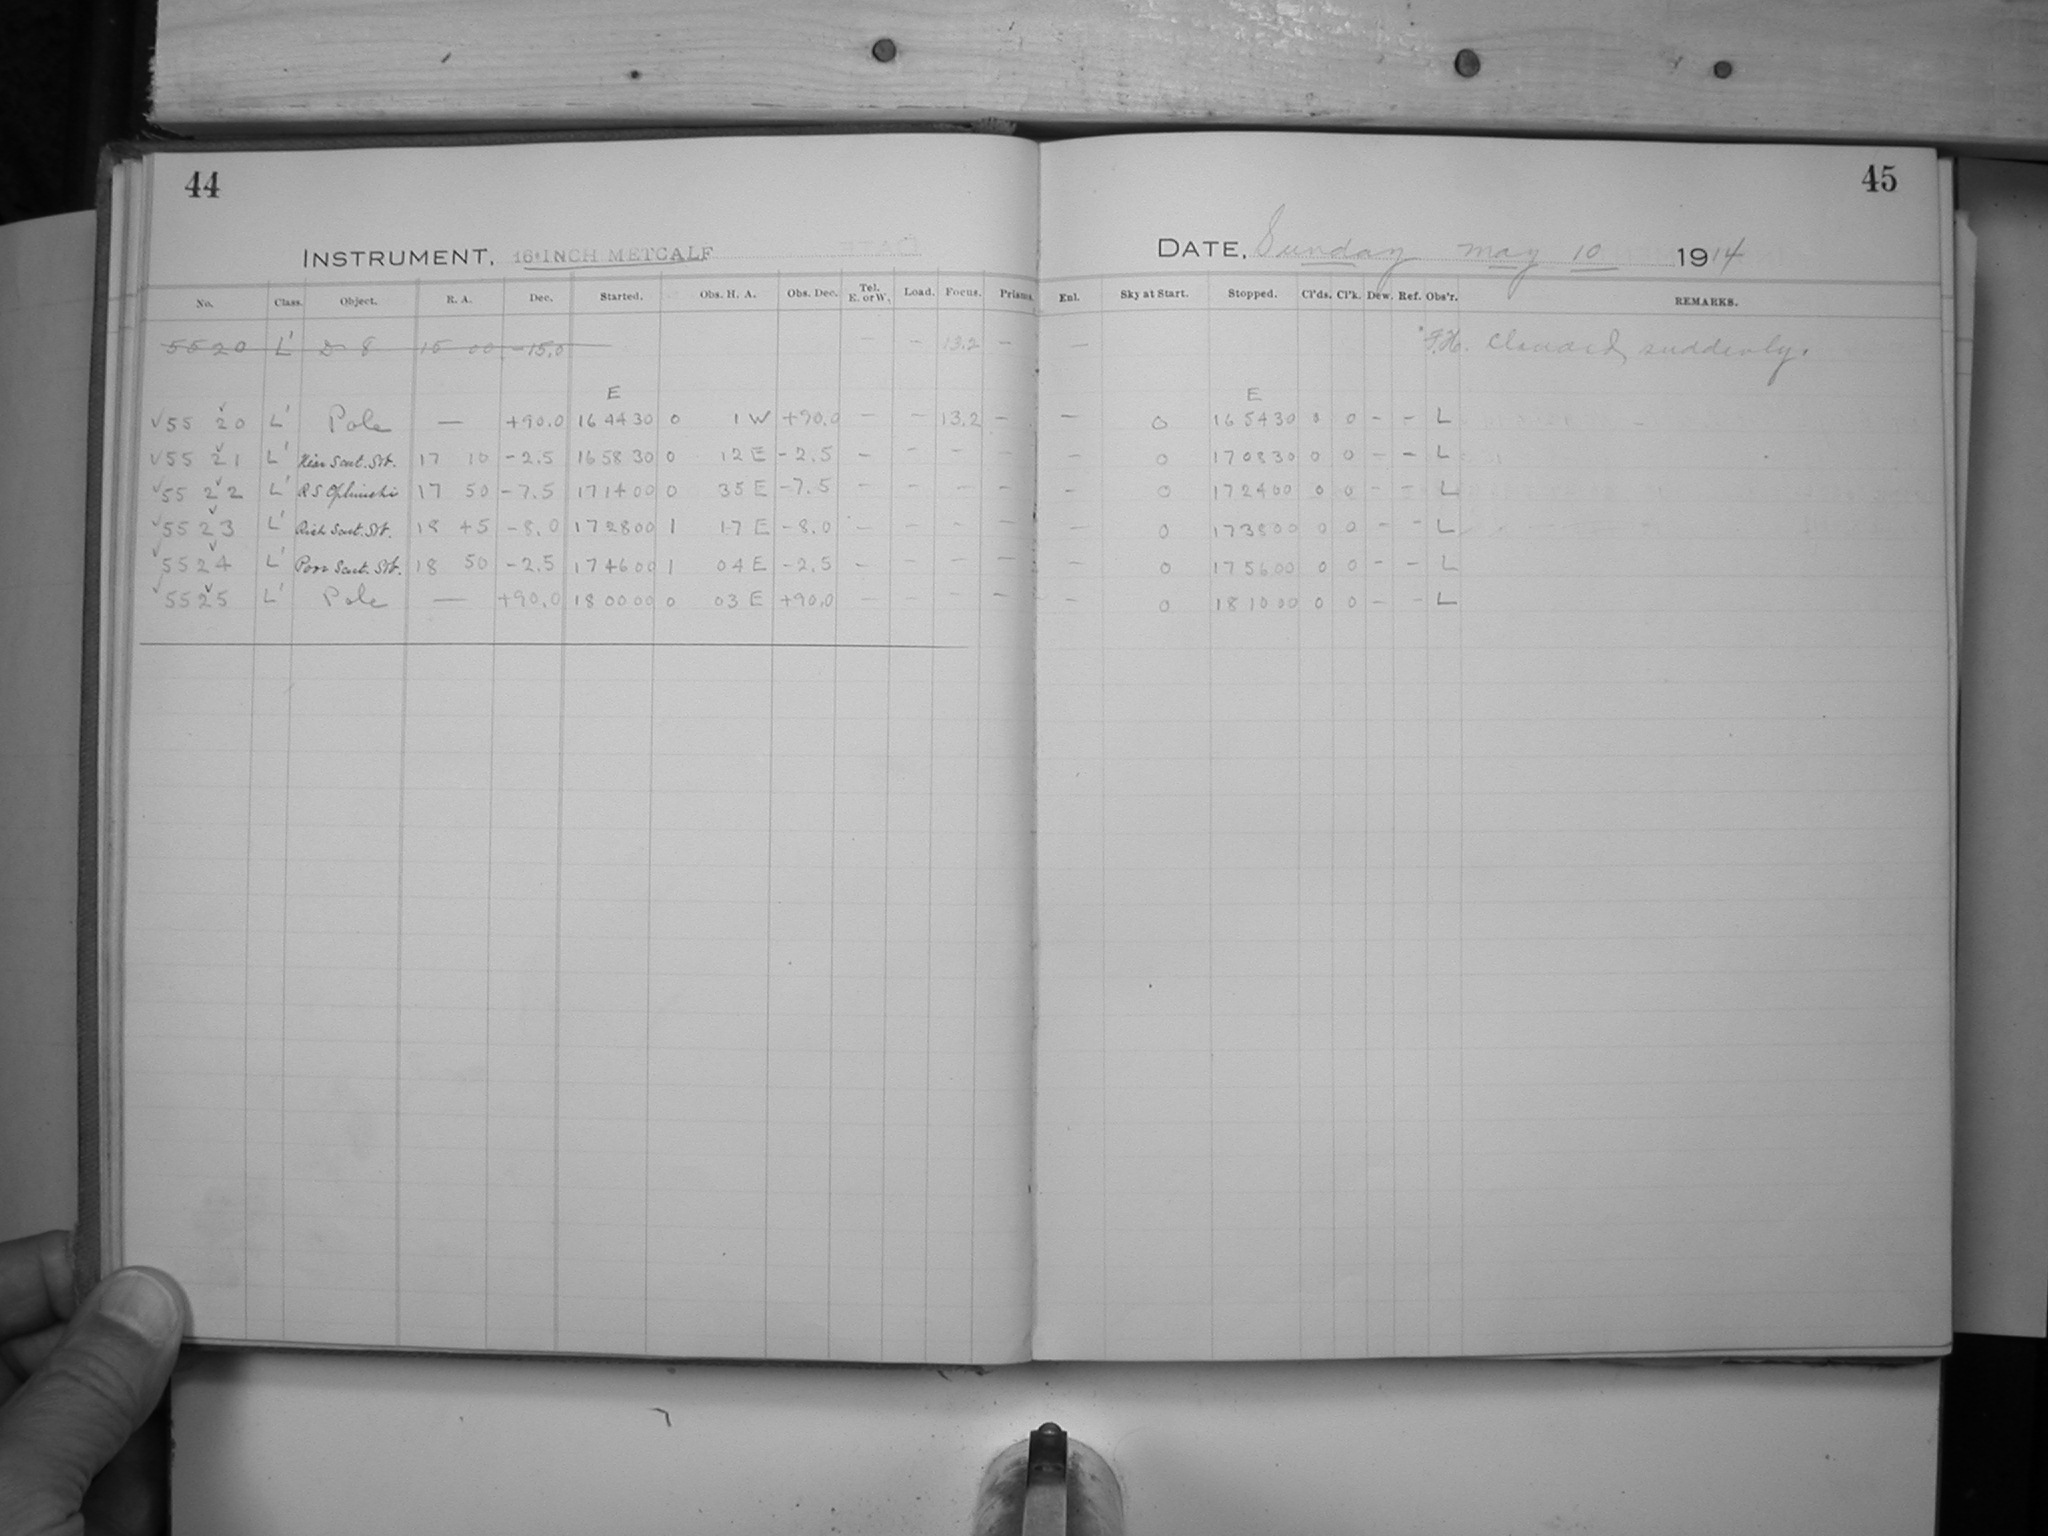 44
45
INSTRUMENT, 16-INCH METCALF
DATE, Sunday May 10 1914
No. Class. Object. R. A. Dec. Started. Obs. H. A. Obs. Dec. Tel. E. or W. Load. Focus. Prisms. Enl. Sky at Start. Stopped. Cl'ds. Cl'k. Dew. Ref. Obs'r. REMARKS.
5520 L' 8 15 00 -15.0 — — 13.2 — — F.H. suddenly.
E E
√55 20 L' Pole — +90.0 16 44 30 0 1 W +90.0 — — 13.2 — — 0 16 54 30 0 0 – – L
√55 21 L' 17 10 -2.5 16 58 30 0 12 E -2.5 — — — — — 0 17 08 30 0 0 – – L
√55 22 L' R S Ophiuchi 17 50 -7.5 17 14 00 0 35 E -7.5 — — — — — 0 17 24 00 0 0 – – L
√55 23 L' Rich Scut. St. 18 45 -8.0 17 28 00 1 17 E -8.0 — — — — — 0 17 38 00 0 0 – – L
√55 24 L' Poor Scut. St. 18 50 -2.5 17 46 00 1 04 E -2.5 — — — — — 0 17 56 00 0 0 – – L
√55 25 L' Pole — +90.0 18 00 00 0 03 E +90.0 — — — — — 0 18 10 00 0 0 – – L